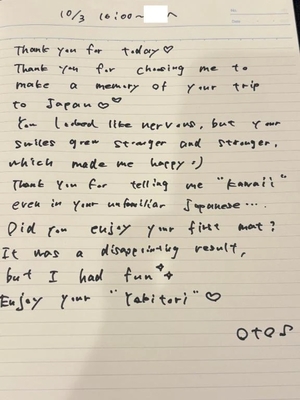 10/3 16:00~ へ
Thank you for today♡
Thank you for choosing me to
make a memory of your trip
to Japan♡♡
You looked like nervous, but your
smiles grew stronger and stronger,
which made me happy :)
Thank you for telling me "kawaii"
even in your unfamiliar Japanese….
Did you enjoy your first mat?
It was a disappointing result,
but I had fun✧✧
Enjoy your "Yakitori" ♡